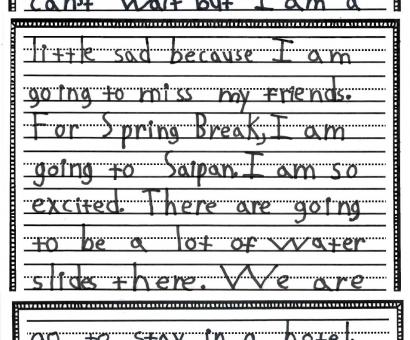 can't wait but I am a
little sad because I am
going to miss my friends.
For Spring Break, I am
going to Saipan. I am so
excited. There are going
to be a lot of water
slides there. We are
to stay in a hotel